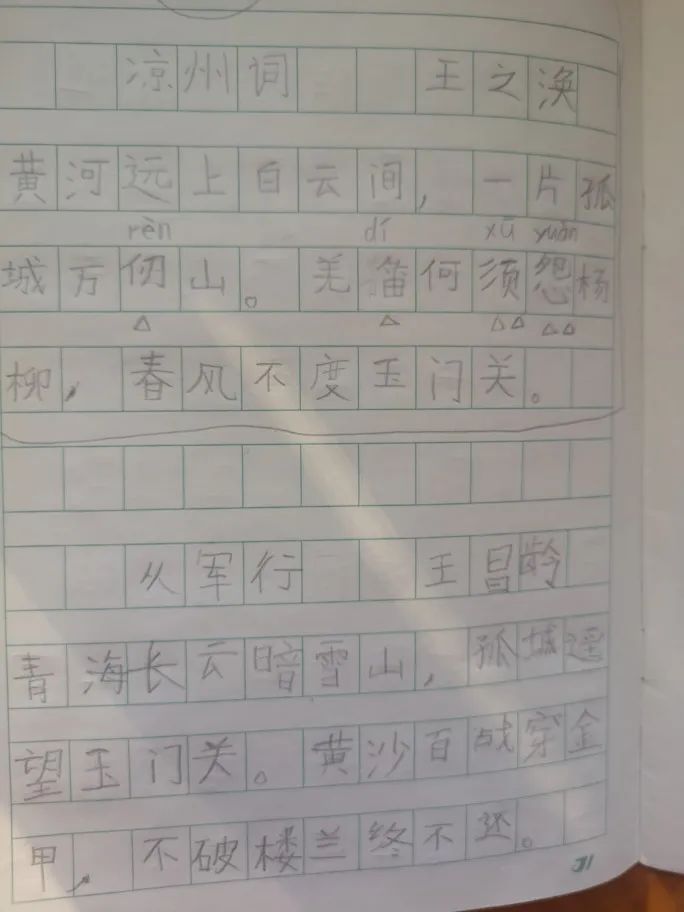 凉州词 王之涣
黄河远上白云间，一片孤
rèn dí xū yuàn
城万仞山。羌笛何须怨杨
柳，春风不度玉门关。
从军行 王昌龄
青海长云暗雪山，孤城遥
望玉门关。黄沙百战穿金
甲，不破楼兰终不还。